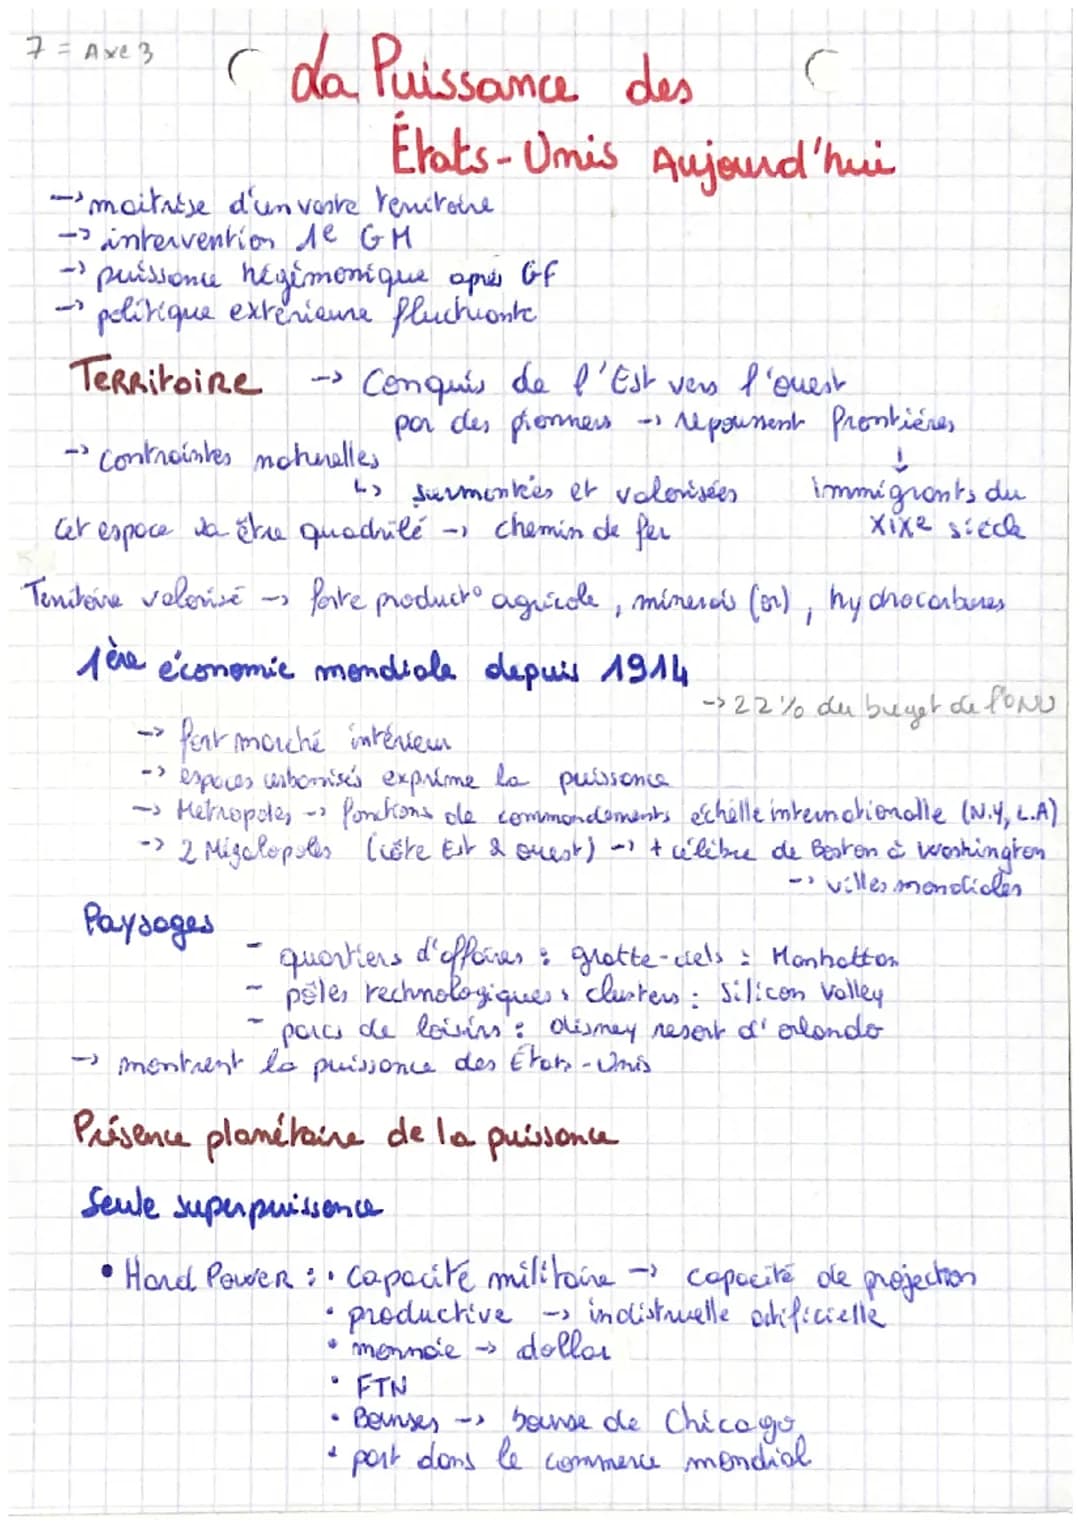 7 = Axe 3
La Puissance des
États-Unis Aujourd'hui
-> maitrise d'un vaste territoire
-> intervention 1e GM
-> puissance hégémonique après GF
-> politique extérieure fluctuante
TERRitoiRE -> Conquis de l'Est vers l'ouest
par des pionners -> repoussent frontières
-> contraintes naturelles
↳ surmontées et valorisées
immigrants du
XIXe siècle
Cet espace va être quadrillé -> chemin de fer
Territoire valorisé -> forte product° agricole, minerais (or), hydrocarbures
1ère économie mondiale depuis 1914
-> 22% du buget de l'ONU
-> fort marché intérieur
-> espaces urbanisés exprime la puissance
-> Métropoles -> fonctions de commandements échelle internationalle (N.Y, L.A)
-> 2 Mégalopoles (côte Est & ouest) -> + célèbre de Boston à Washington
-> villes mondiales
Paysages
- quartiers d'affaires : gratte-ciels : Manhattan
- pôles technologiques, clusters : Silicon Valley
- parcs de loisirs : Disney resort d'orlando
-> montrent la puissance des États-Unis
Présence planétaire de la puissance
Seule superpuissance
• Hard PoweR : • capacité militaire -> capacité de projection
• productive -> indistruelle artificielle
• monnaie -> dollar
• FTN
• Bourses -> bourse de Chicago
• part dans le commerce mondial